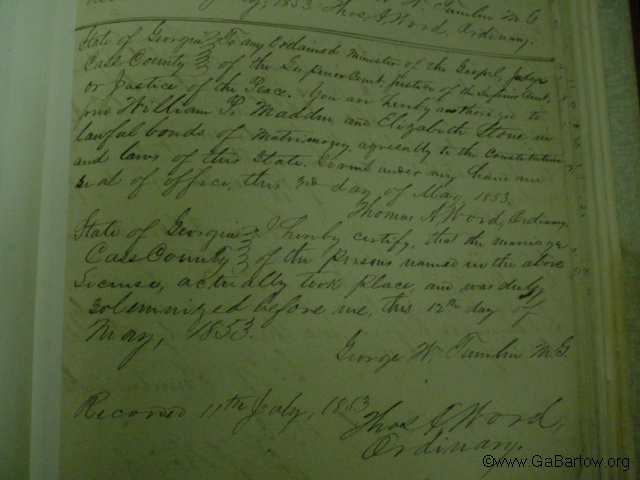 W. Tumlin M.G.
July, 1853 Thos. A. Word, Ordinary.
State of Georgia } To any Ordained Minister of the Gospel, Judge
Cass County } of the Superior Court, Justice of the Inferior Court,
or Justice of the Peace. You are hereby authorized to
join William P. Maddin and Elizabeth Stone in
lawful bonds of matrimony, agreeally to the Constitution
and laws of this State. Given under my hand and
Seal of office, this 3rd day of May 1853.
Thomas A Word, Ordinary.
State of Georgia } I hereby certify, that the marriage
Cass County } of the Persons named in the above
License, actually took place, and was duly
Solemnized before me, this 12th day of
May, 1853.
George W. Tumlin M.G.
Record 11th July, 1853
Thos. A. Word,
Ordinary.
©www.GaBartow.org